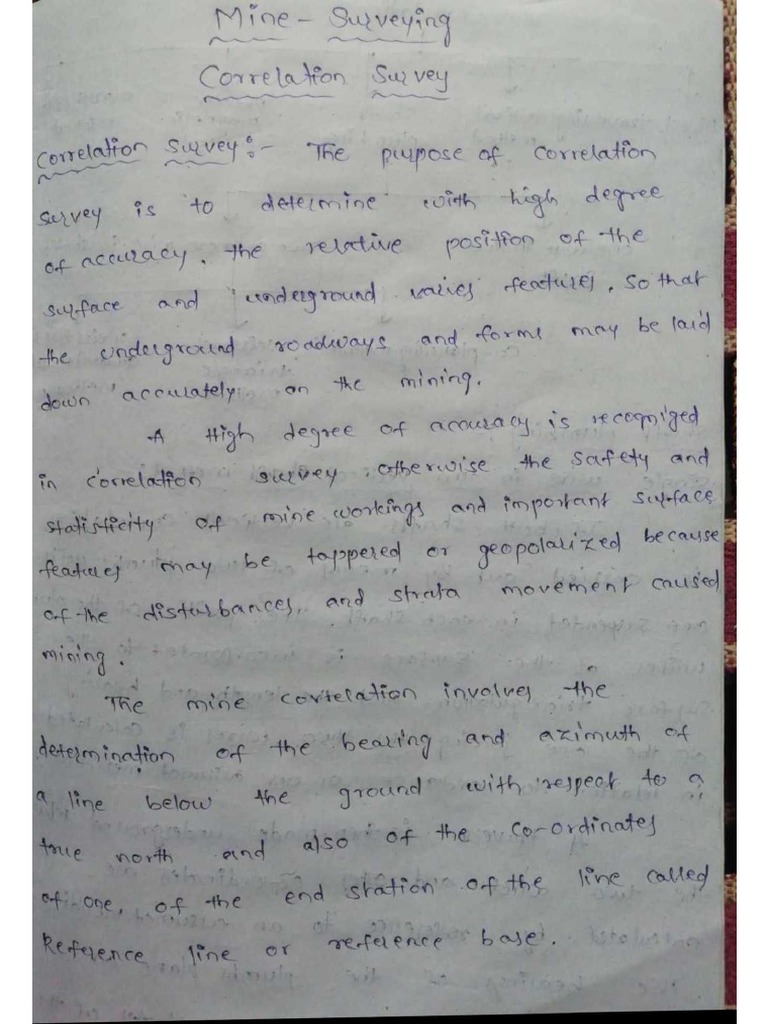 Mine - Surveying
Correlation Survey
Correlation Survey :- The purpose of correlation
survey is to determine with high degree
of accuracy. the relative position of the
surface and underground varies features. so that
the underground roadways and forms may be laid
down accurately on the mining.
A High degree of accuracy is recognized
in correlation survey otherwise the safety and
statisticity of mine workings and important surface
features may be tappered or geopolarized because
of the disturbances, and strata movement caused
mining.
The mine correlation involves the
determination of the bearing and azimuth of
a line below the ground with respect to a
true north and also of the co-ordinates
of one, of the end station of the line called
Reference line or reference base.